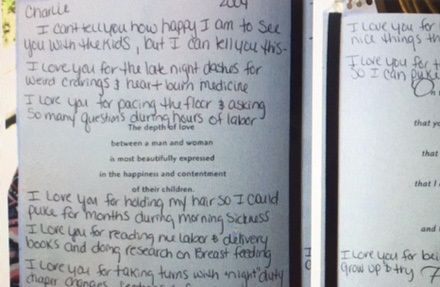 Charlie 2004
I can't tell you how happy I am to see
you with the kids, but I can tell you this-
I love you for the late night dashes for
weird cravings & heart burn medicine
I love you for pacing the floor & asking
So many questions during hours of labor
The depth of love
between a man and woman
is most beautifully expressed
in the happiness and contentment
of their children.
I love you for holding my hair so I could
puke for months during morning Sickness
I love you for reading me labor & delivery
books and doing research on Breast feeding
I love you for taking turns with "night" duty
diaper changes,
I love you for
nice things th
I love you for t
So I can puke
that yo
that
that I
and
I love you for bei
Grow up & try